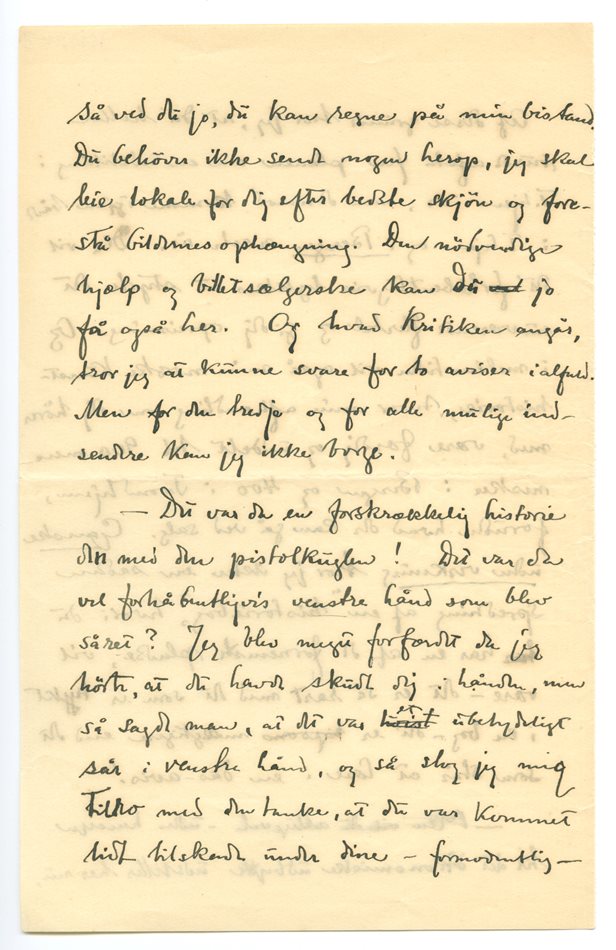 så ved du jo, du kan regne på min bistand.
Du behøver ikke sende nogen herop, jeg skal
leie lokale for dig efter bedste skjøn og fore-
stå billdernes ophængning. Den nödvendige
hjælp og billetsælgerske kan du jo
få også her. Og hvad Kritiken angår,
tror jeg at kunne svare for to aviser ialfald.
Men for den tredje og for alle mulige ind-
sendere kan jeg ikke borge.
— Det var da en forskrækkelig historie
den med den pistolkuglen! Det var da
vel forhåbentligvis venstre hånd som blev
såret? Jeg blev meget forfærdet da jeg
hørte, at du havde skudt dig i hånden, men
så sagde man, at det var et ubetydeligt
sår i venstre hånd, og så slog jeg mig
Tilro med den tanke, at du var kommet
lidt tilskade under dine — formodentlig —